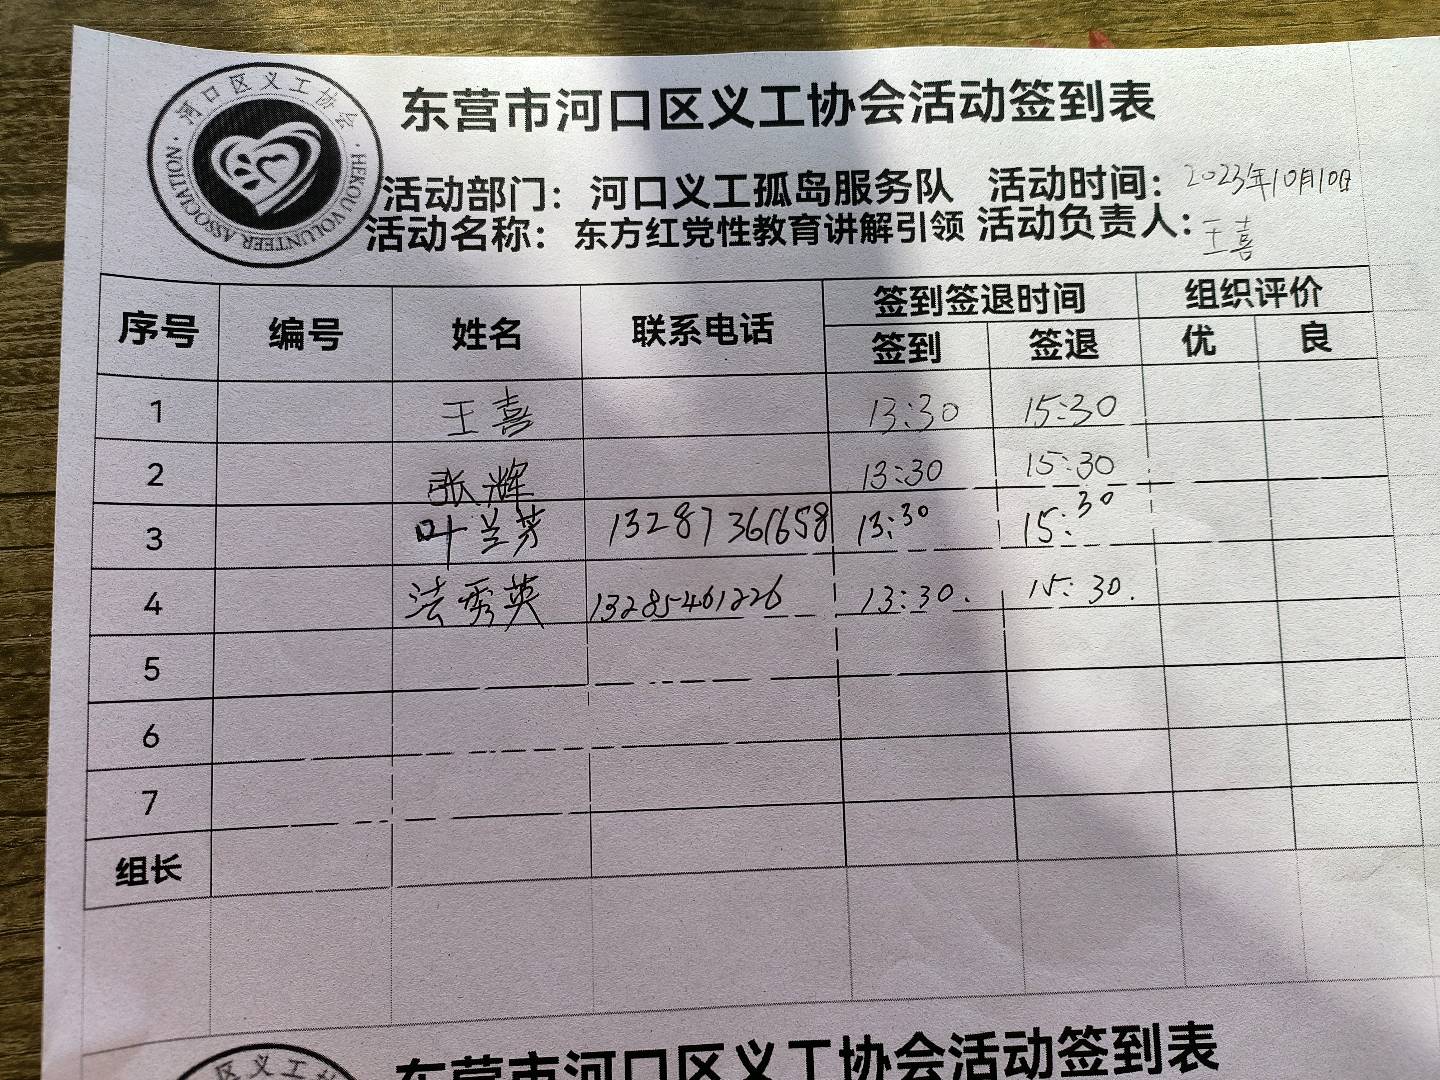 河口区义工协会
HEKOU VOLUNTEER ASSOCIATION
东营市河口区义工协会活动签到表
活动部门：河口义工孤岛服务队 活动时间：2023年10月10日
活动名称：东方红党性教育讲解引领 活动负责人：王喜
序号 编号 姓名 联系电话 签到签退时间 组织评价
签到 签退 优 良
1 王喜 13:30 15:30
2 张辉 13:30 15:30
3 叶兰芳 13287361658 13:30 15:30
4 法秀英 13285461226 13:30. 15:30.
5
6
7
组长
区义工协
东营市河口区义工协会活动签到表